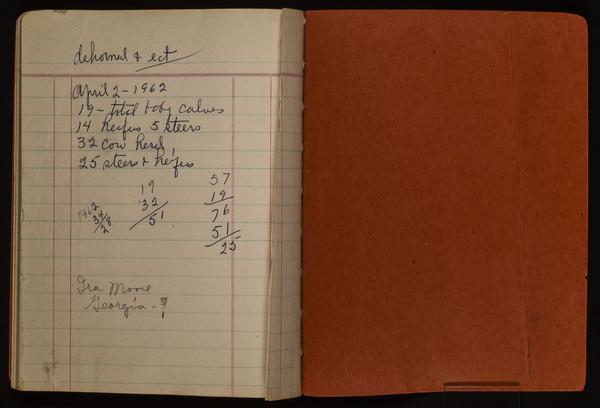 dehorned & ect
April 2 - 1962
19 - total baby calves
14 heifers 5 steers
32 cow herd,
25 steers & heifers
19
32
51
57
19
76
51
25
1962
34
28
Ira Moore
Georgia -